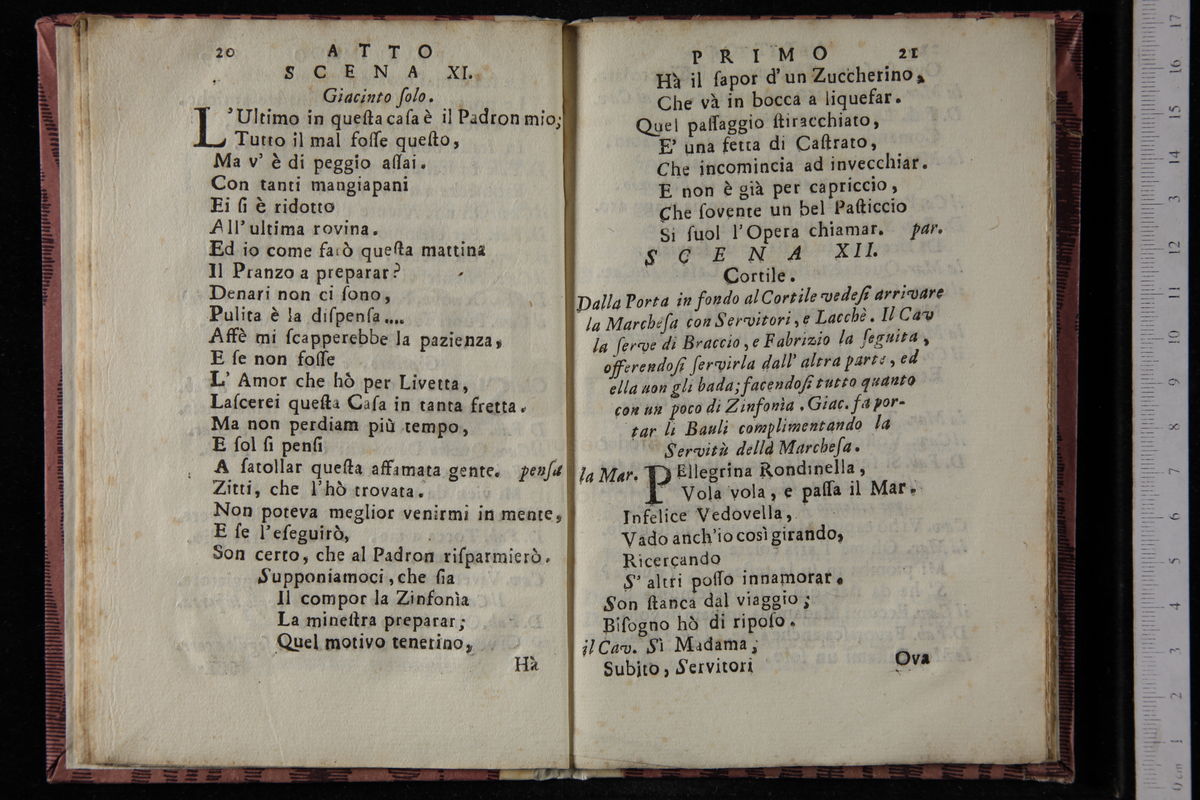 20 ATTO
SCENA XI.
Giacinto ſolo.
L'Ultimo in queſta caſa è il Padron mio;
Tutto il mal foſſe queſto,
Ma v' è di peggio aſſai.
Con tanti mangiapani
Ei ſi è ridotto
All' ultima rovina.
Ed io come farò queſta mattina
Il Pranzo a preparar?
Denari non ci ſono,
Pulita è la diſpenſa....
Affè mi ſcapperebbe la pazienza,
E ſe non foſſe
L' Amor che hò per Livetta,
Laſcerei queſta Caſa in tanta fretta.
Ma non perdiam più tempo,
E ſol ſi penſi
A ſatollar queſta affamata gente. penſa
Zitti, che l'hò trovata.
Non poteva meglior venirmi in mente,
E ſe l'eſeguirò,
Son certo, che al Padron riſparmierò.
Supponiamoci, che ſia
Il compor la Zinfonìa
La mineſtra preparar;
Quel motivo tenerino,
Hà
PRIMO 21
Hà il ſapor d' un Zuccherino,
Che và in bocca a liquefar.
Quel paſſaggio ſtiracchiato,
E' una fetta di Caſtrato,
Che incomincia ad invecchiar.
E non è già per capriccio,
Che ſovente un bel Paſticcio
Si ſuol l'Opera chiamar. par.
SCENA XII.
Cortile.
Dalla Porta in fondo al Cortile vedeſi arrivare
la Marcheſa con Servitori, e Lacchè. Il Cav
la ſerve di Braccio, e Fabrizio la ſeguita,
offerendoſi ſervirla dall' altra parte, ed
ella uon gli bada; facendoſi tutto quanto
con un poco di Zinfonìa. Giac. fa por-
tar li Bauli complimentando la
Servitù della Marcheſa.
la Mar. PEllegrina Rondinella,
Vola vola, e paſſa il Mar.
Infelice Vedovella,
Vado anch'io così girando,
Ricercando
S' altri poſſo innamorar.
Son ſtanca dal viaggio;
Biſogno hò di ripoſo.
il Cav. Sì Madama;
Subito, Servitori
Ova